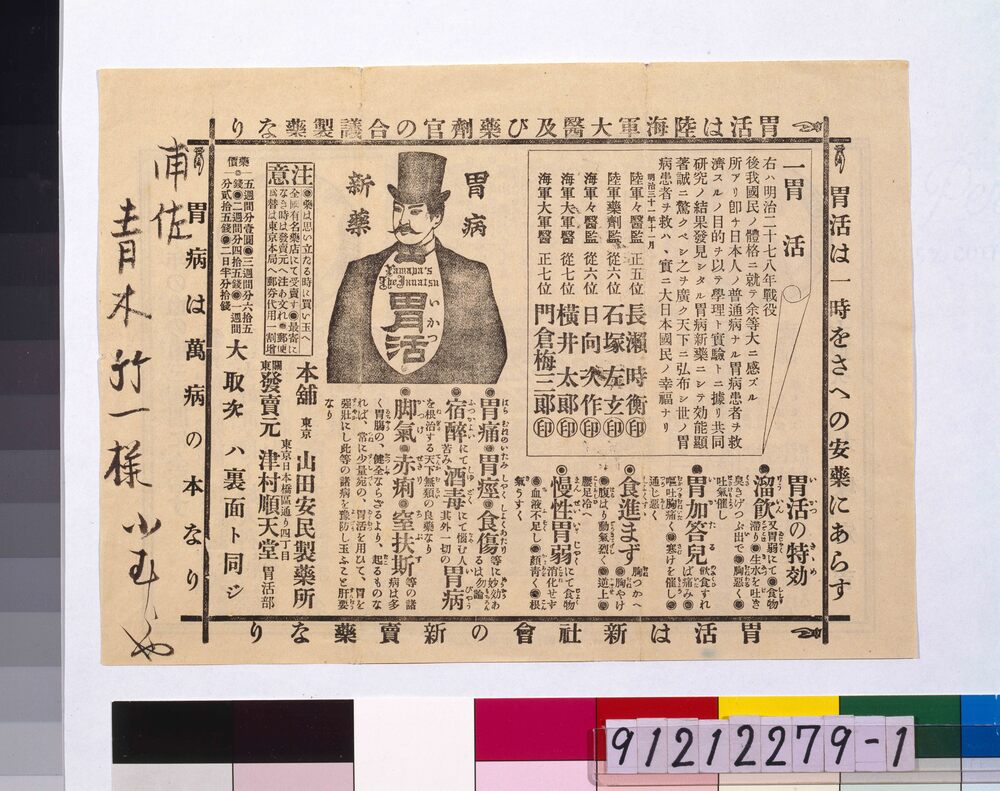 胃活は陸海軍大醫及び藥劑官の合議製藥なり
胃活は一時をさへの安藥にあらす
一胃活
右ハ明治二十七八年戰役
後我國民ノ體格ニ就テ余等大ニ感ズル
所アリ卽チ日本人ノ普通病ナル胃病患者ヲ救
濟スルノ目的ヲ以テ學理ト實驗トニ據リ共同
研究ノ結果發見シタル胃病新藥ニシテ効能顯
著誠ニ驚クベシ之ヲ廣ク天下ニ弘布シ世ノ胃
病患者ヲ救ハヾ實ニ大日本國民ノ幸福ナリ
明治三十一年十一月
陸軍々醫監 正五位 長瀬時衡 印
陸軍藥劑監 從六位 石塚左玄 印
海軍々醫監 從六位 日向次作 印
海軍大軍醫 從七位 横井太郎 印
海軍大軍醫 正七位 門倉梅三郎 印
胃活の特効
溜飲 又胃弱にて◉食物
滯り◉生水を吐き
臭きげつぷ出で◉胸惡く◉
吐氣催し
胃加答兒 飲食すれ
ば痛み◉
嘔吐胸痛く◉寒けを催し◉
通じ惡く
食進まず 胸つかへ
◉胸やけ
◉腹はり動氣烈く◉逆上◉
腰足冷へ
慢性胃弱 にて食物
消化せす
◉血液不足し◉顔靑く◉根
氣うすく
胃病
新藥
Yamada's
The Inuatsu
いかつ
胃活
胃痛◉胃痙◉食傷等に妙効あ
るは勿論
宿醉にて苦み酒毒にて惱む人其外一切の胃病
を根治する天下無類の良藥なり
脚氣◉赤痢◉窒扶斯等の諸
病は多
く胃腸の、健全ならざるより、起るものな
れば、常に少量宛の、胃活を用ひて、胃を
強壯にし此等の諸病を豫防し玉ふこと肝要
なり
注意
◉藥は思い立たる時に買い玉へ
全國有名藥店にて受賣す◉最寄に
なき時は發賣元へ注き文あれ◉郵便
爲替は東京本局へ郵券代用一割增
藥價
◉五週間分壹圓◉三週間分六拾五
錢◉二週間分四拾五錢◉一週間
分貳拾五錢◉二日半分拾錢
本舖 東京 山田安民製藥所
關東發賣元 東京日本橋區通り四丁目 津村順天堂 胃活部
大取次ハ裏面ト同ジ
胃病は萬病の本なり
胃活は新社會の新賣藥なり
甫佐
靑木竹一樣
91212279-1